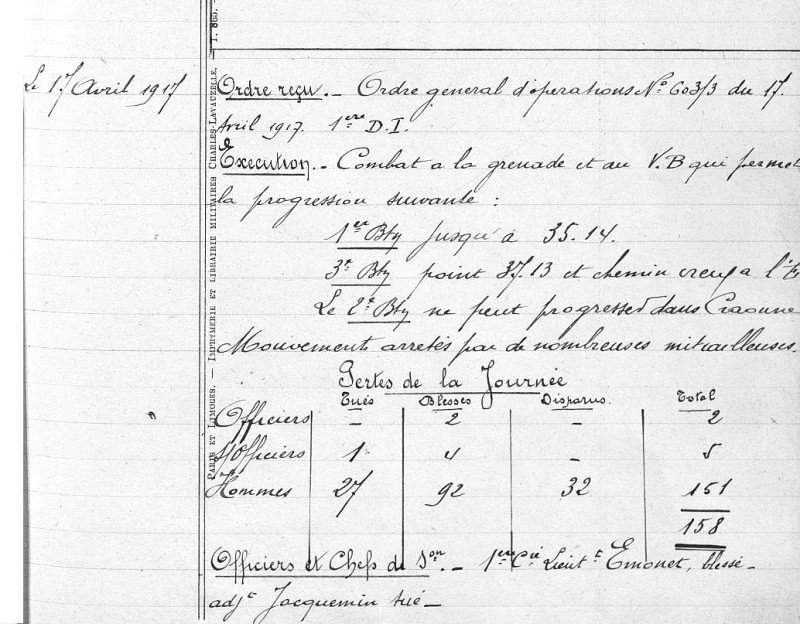 T. 863.
PARIS ET LIMOGES. — IMPRIMERIE ET LIBRAIRIE MILITAIRES CHARLES-LAVAUZELLE.
Le 17 Avril 1917
Ordre reçu. - Ordre general d'operations No 603/3 du 17.
Avril 1917. 1ere D.I.
Execution. - Combat a la grenade et au V.B qui permet
la progression suivante :
1er Btn Jusqu'à 35.14.
3e Btn point 37.13 et chemin creux a l'E
Le 2e Btn ne peut progresser dans Craonne
Mouvement arretés par de nombreuses mitrailleuses.
Pertes de la Journée
Tués Blesses Disparus. Total
Officiers - 2 - 2
S/Officiers 1 4 - 5
Hommes 27 92 32 151
158
Officiers et Chefs de Son. - 1ere Cie Lieutt Emonet, blessé -
adjt Jacquemin tué -